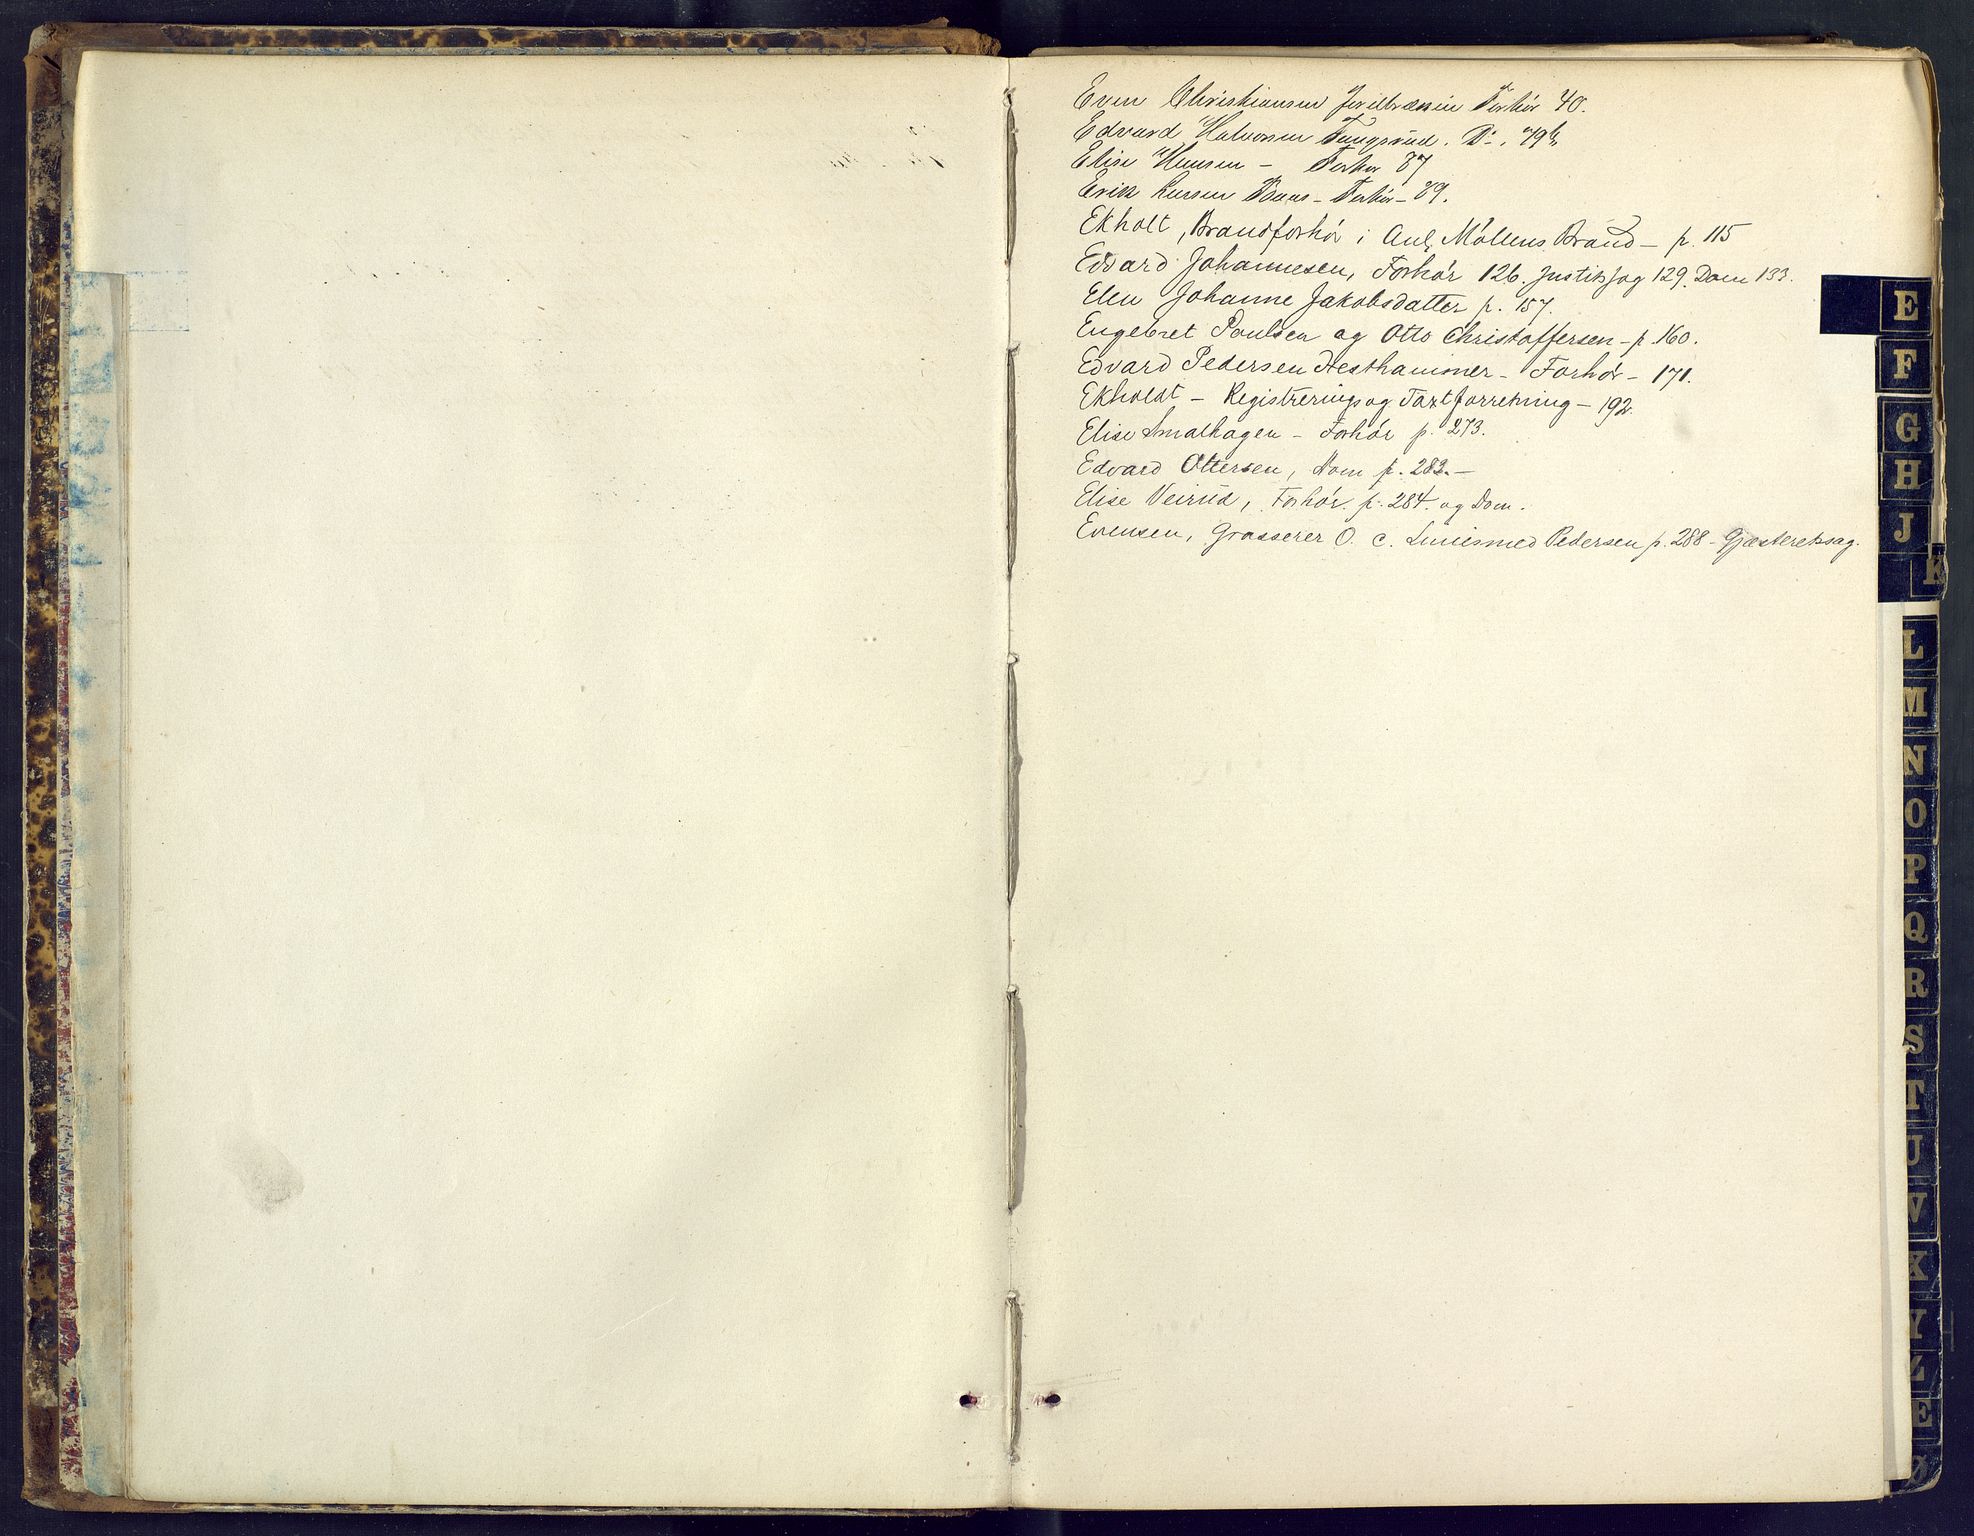 Even Christiansen Forhør 40.
Edvard Halvorsen Tungsrud. Do. 79
Elise Hansen – Forhør 87
Erik Larsen Baas – Forhør – 89.
Ekholt, Brandforhør i Anl. Møllens Brand – p. 115
Edvard Johannesen, Forhør 126. Justitssag 129. Dom 133.
Elen Johanne Jakobsdatter p. 157.
Engebret Poulsen og Otto Christoffersen – p. 160.
Edvard Pedersen Hesthammer – Forhør – 171.
Ekholdt – Registrerings og Taxtforretning – 192.
Elise Smalhagen – Forhør p. 273.
Edvard Ottersen, Dom p. 283. –
Elise Veirud, Forhør p. 284. og Dom.
Evensen, Grosserer O. c. Pedersen p. 288 – Gjæsteretssag.
E
F
G
H
J
K
L
M
N
O
P
Q
R
S
T
U
V
X
Y
Z
Æ
Ø